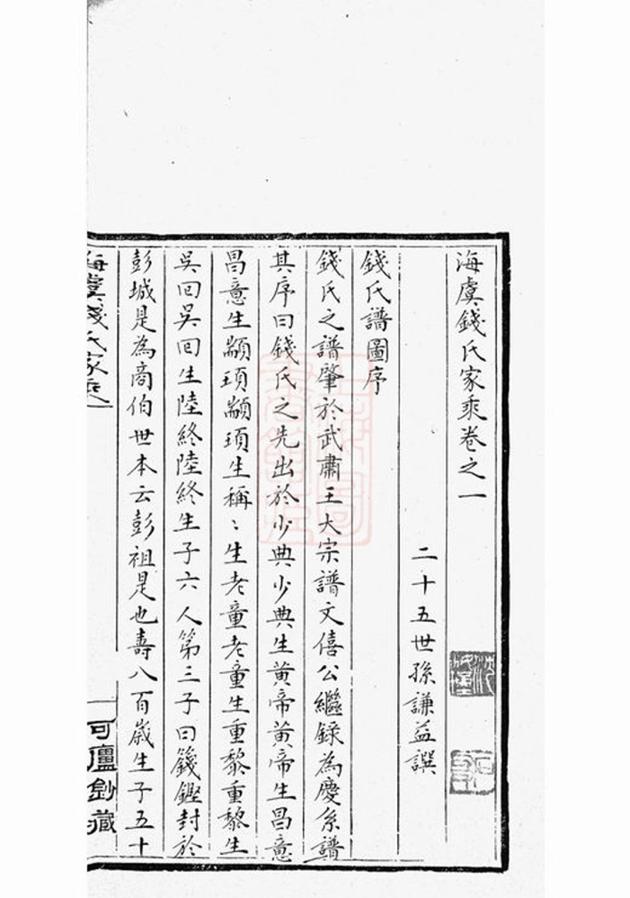 海虞錢氏家乘卷之一
二十五世孫謙益譔
錢氏譜圖序
錢氏之譜肇於武肅王大宗譜文僖公繼錄為慶系譜
其序曰錢氏之先出於少典少典生黃帝黃帝生昌意
昌意生顓頊顓頊生稱〻生老童老童生重黎重黎生
吳回吳回生陸終陸終生子六人第三子曰籛鏗封於
彭城是為商伯世本云彭祖是也壽八百歲生子五十
海虞錢氏家乘
一
可廬鈔藏